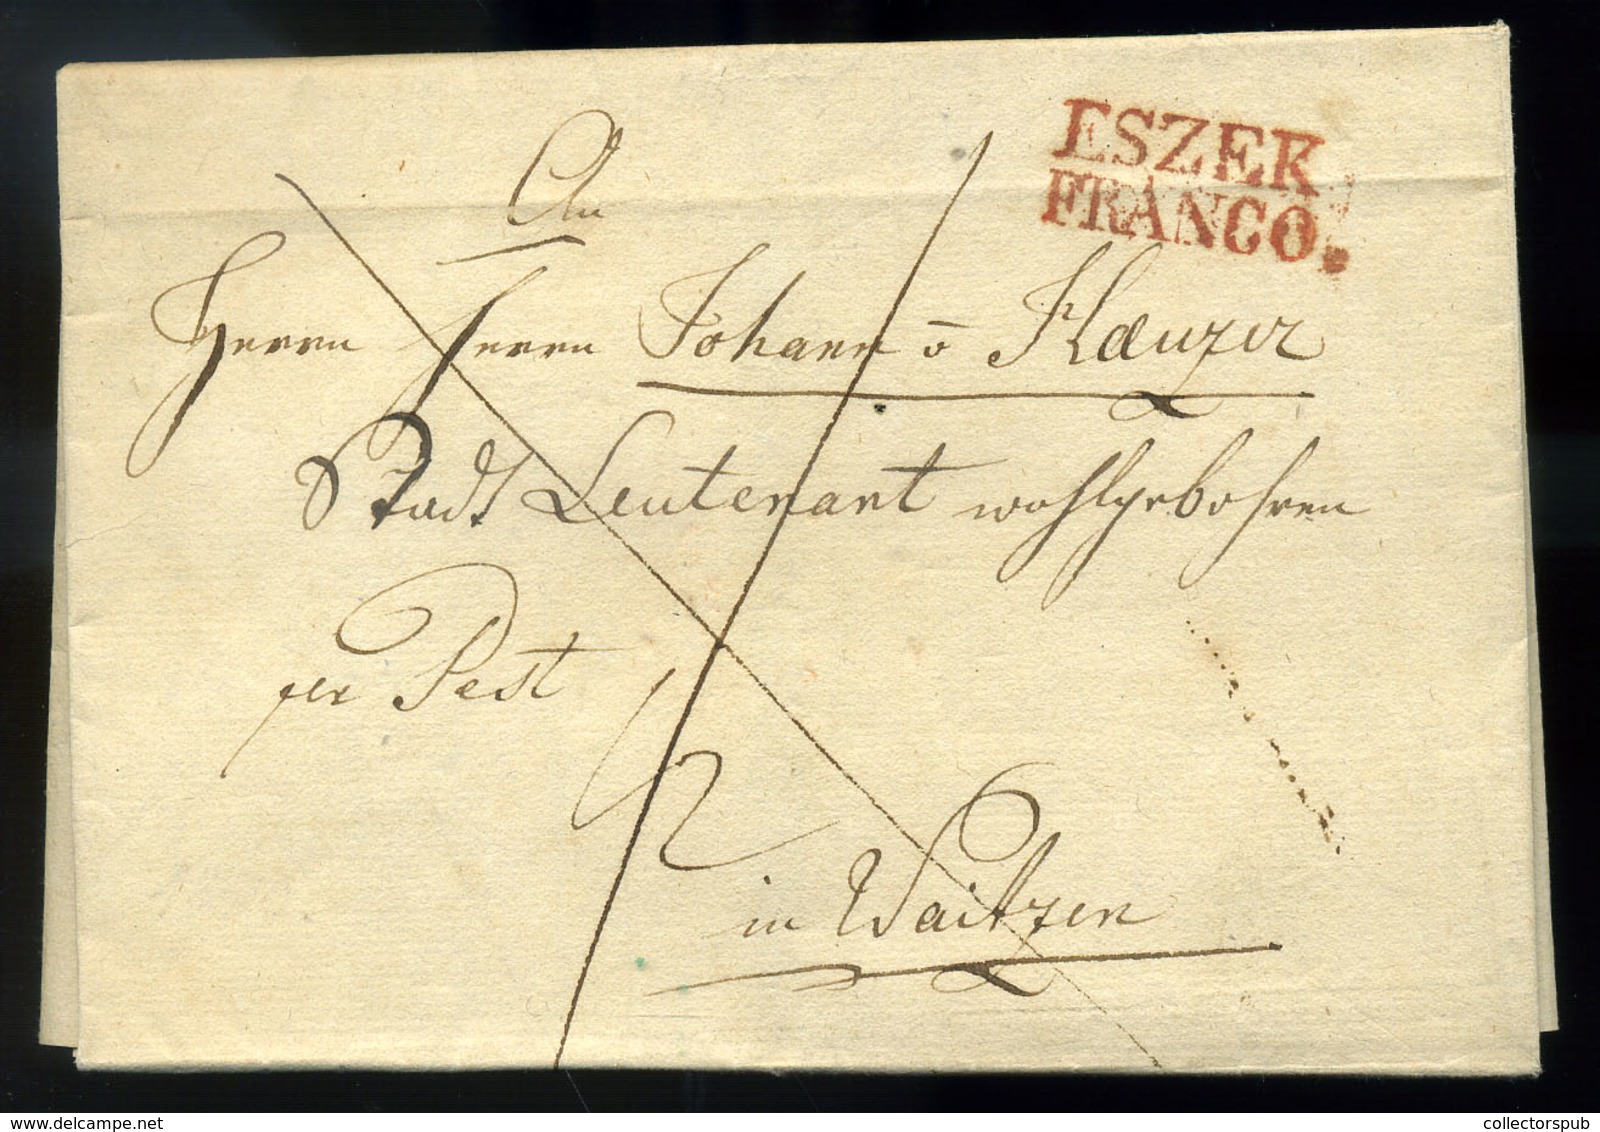 ESZEK
FRANCO.
An
Herrn Herrn Johann v
Stadt Leutenant wohlgebohren
per Pest
in Waitzen
collectorspub.com